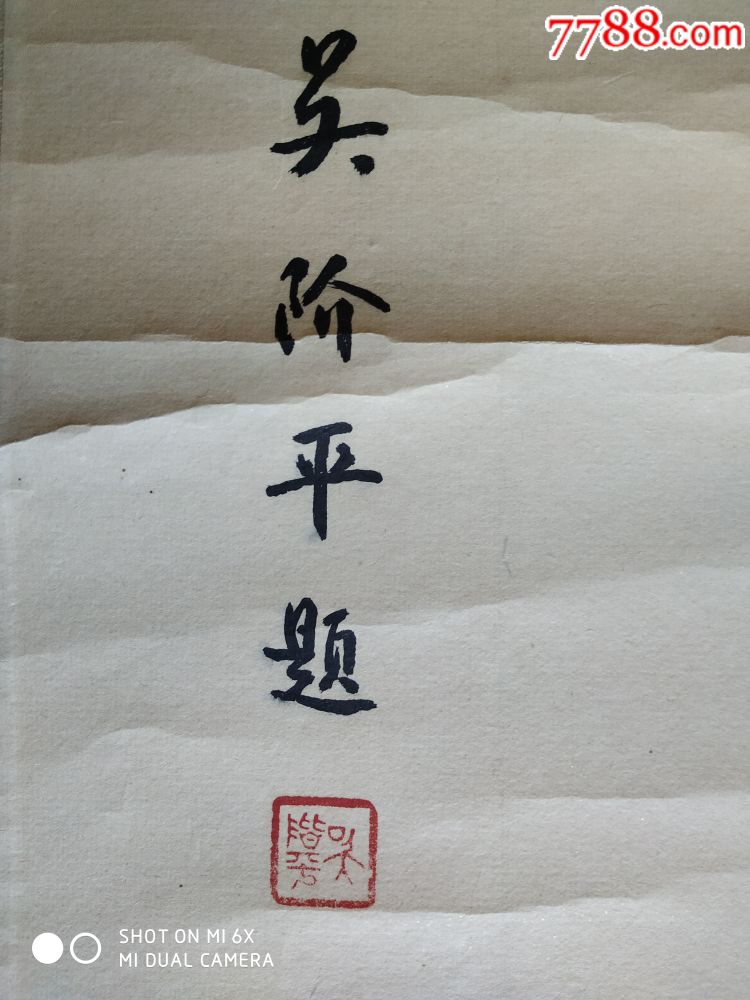 7788.com
吴阶平题
吴階平
SHOT ON MI 6X
MI DUAL CAMERA